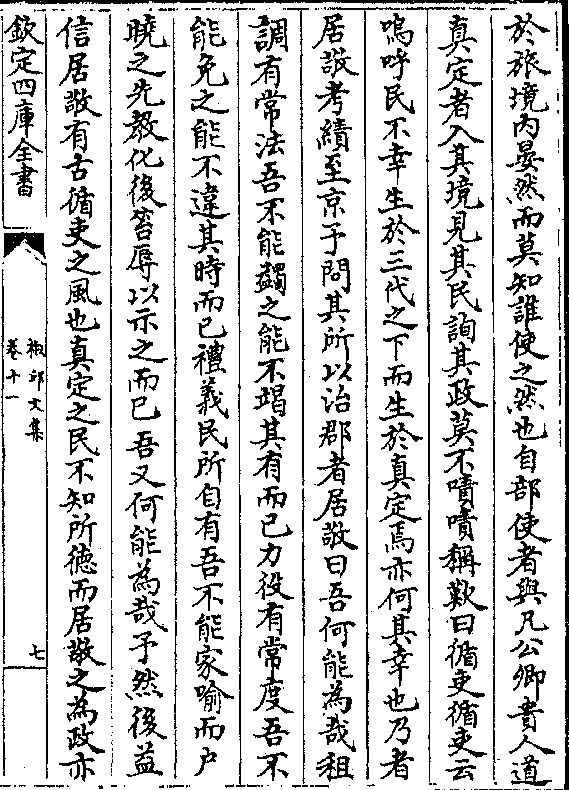 於旅境内晏然而莫知誰使之然也自部使者與凡公卿貴人道
真定者入其境見其民詢其政莫不嘖嘖稱歎曰循吏循吏云
嗚呼民不幸生於三代之下而生於真定焉亦何其幸也乃者
居敬考績至京予問其所以治郡者居敬曰吾何能為哉租
調有常法吾不能蠲之能不竭其有而已力役有常度吾不
能免之能不違其時而已禮義民所自有吾不能家喻而户
曉之先教化後笞辱以示之而已吾又何能為哉予然後益
信居敬有古循吏之風也真定之民不知所徳而居敬之為政亦
欽定四庫全書
椒邱文集
卷十一
七